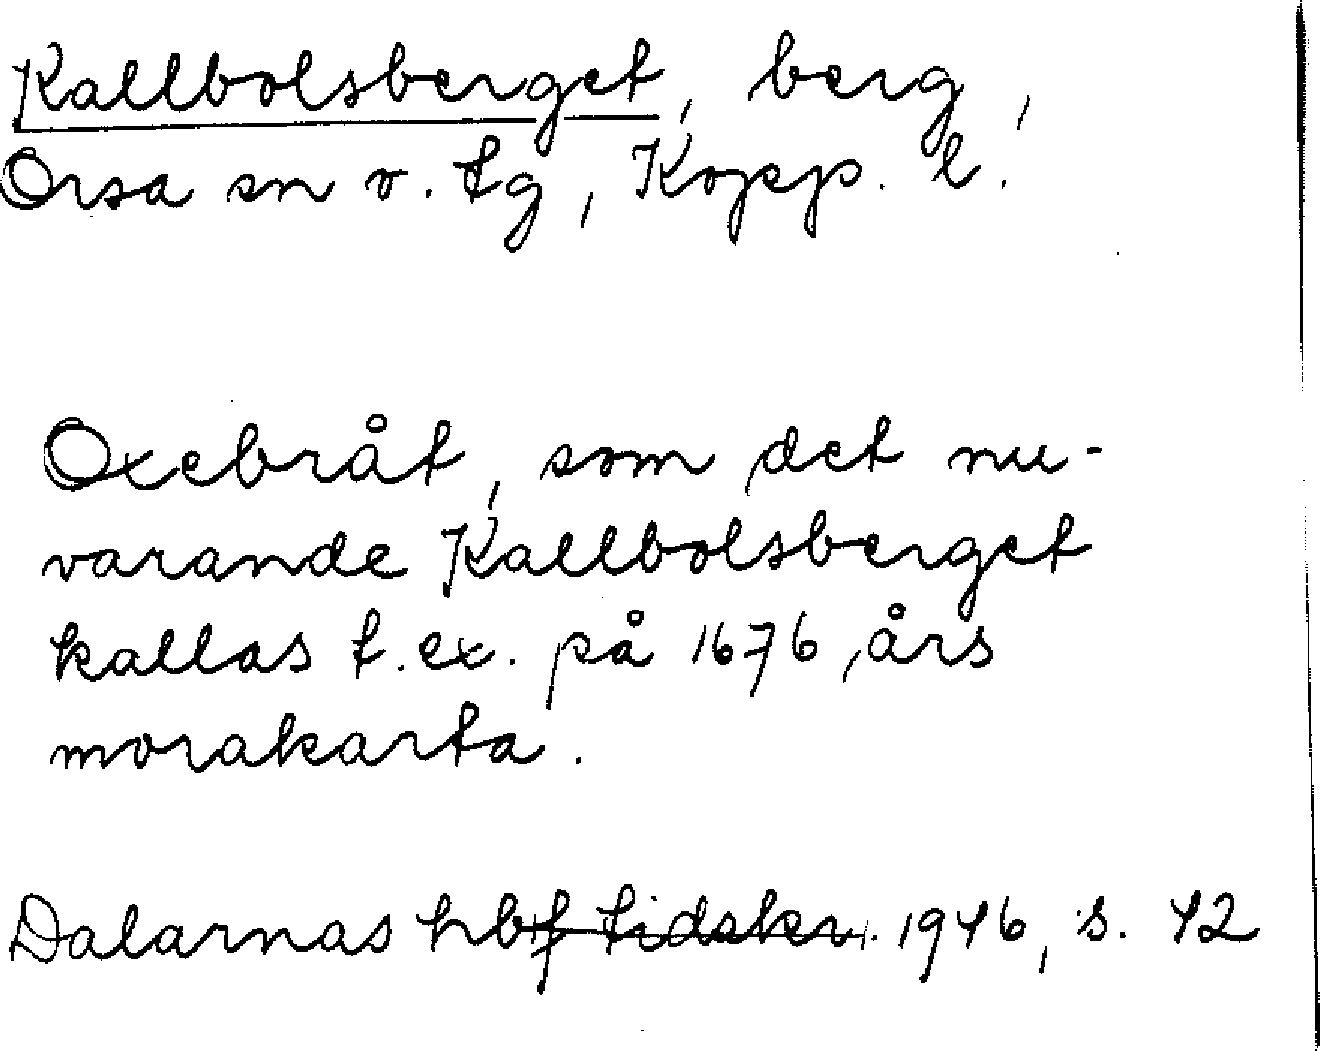 Kallbolsberget, berg,
Orsa sn o. tg, Kopp. l.
Oxebråt, som det nu-
varande Kallbolsberget
kallas t.ex. på 1676 års
morakarta.
Dalarnas hbf tidskr. 1946, s. 42